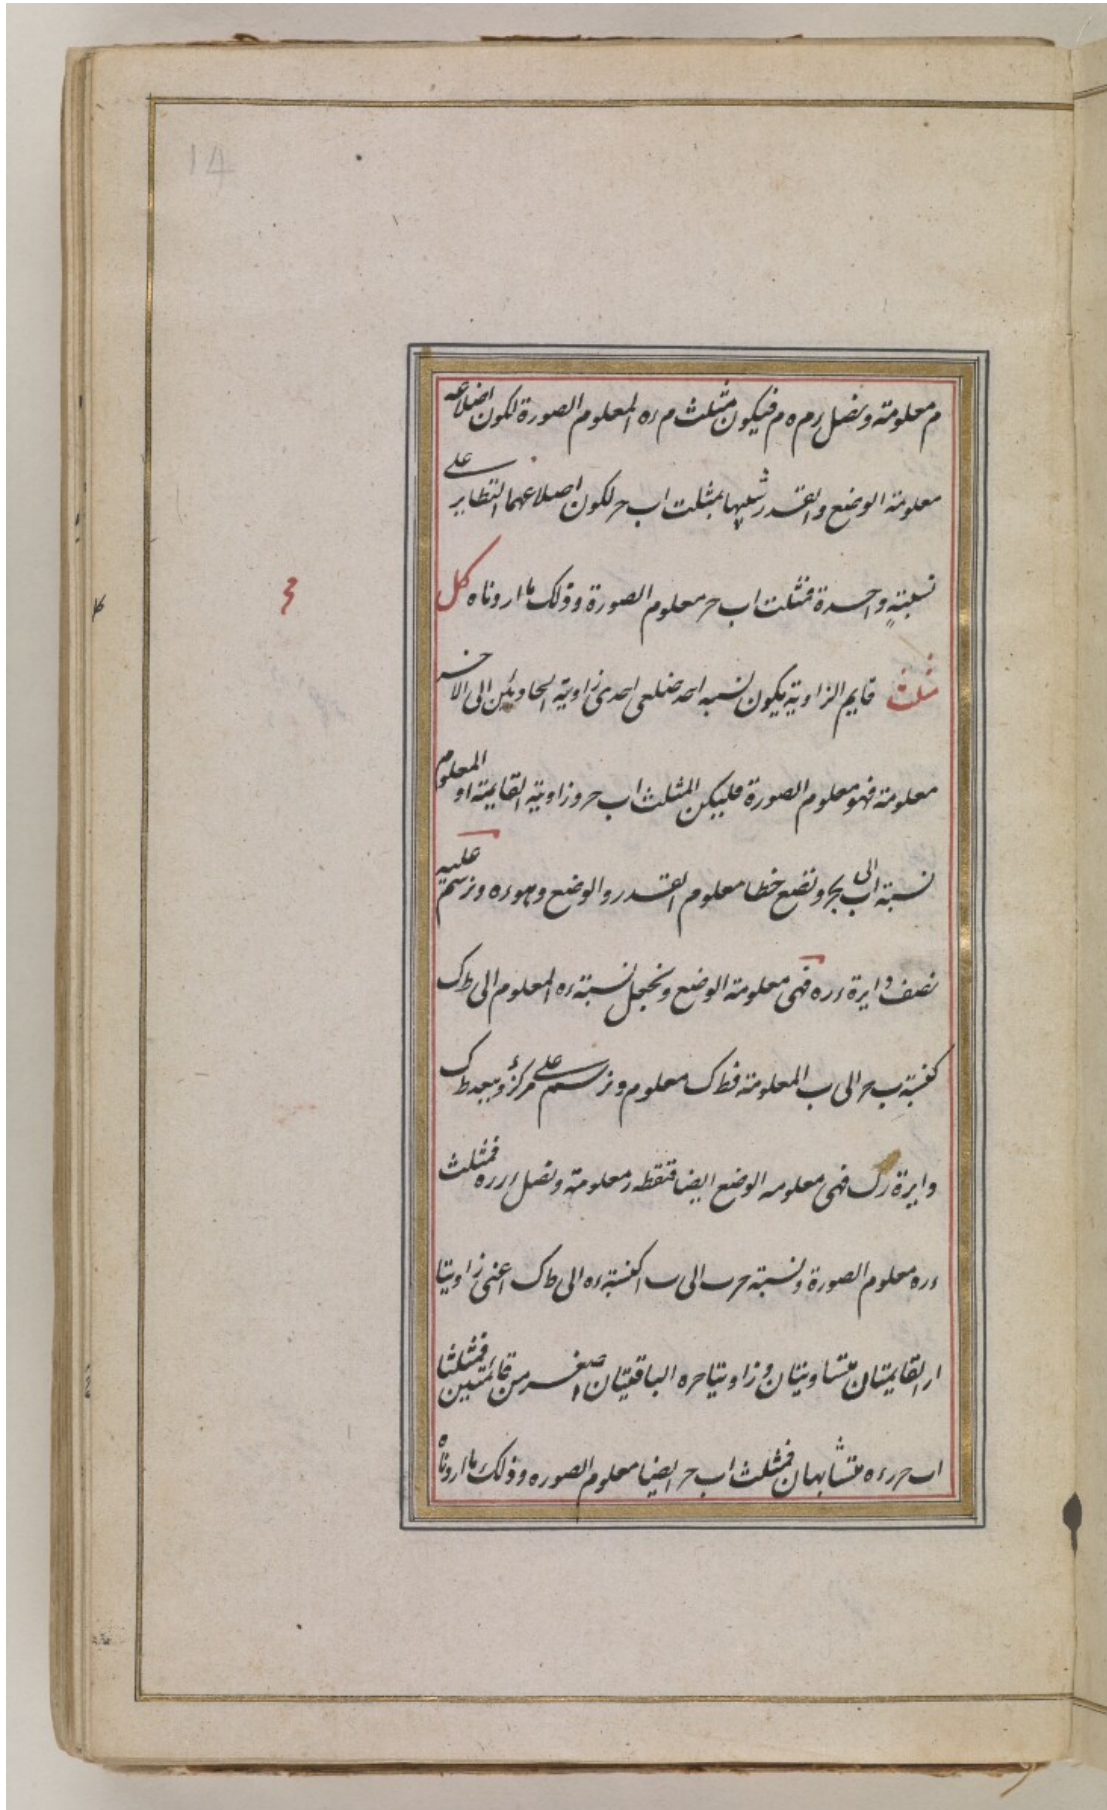 14
م معلومة ونصل رم ه م فيكون مثلث م ره المعلوم الصورة لكون اضلاعه
معلومة الوضع والقدر شبيها بمثلث اب حر لكون اضلاعهما التظاير على
نسبته واحدة فمثلث اب حر معلوم الصورة وذلك ما اردناه كل
مثلث قايم الزاوية يكون نسبه احد ضلعى احدى زاويتة الحاويتين الى الاخر
معلومة فهو معلوم الصورة فليكن المثلث اب حر وزاويته القايمة او المعلوم
نسبة اب الى بحر ونضع خطا معلوم القدر والوضع وهو ءه ونرسم عليه
نصف دايرة ءره فهى معلومة الوضع ونجعل نسبة ءه المعلوم الى ط ك
كنسبة ب حر الى ب المعلومة فط ك معلوم ونرسم على مركز ء وببعد ط ك
دايرة رك فهى معلومه الوضع ايضا فنقطه ر معلومة ونصل ءر ره فمثلث
ءره معلوم الصورة ونسبة حرب الى ب ا كنسبة ءه الى ط ك اعنى زاويتا
ار القايمتان متساويتان وزاويتا حره الباقيتان اصغر من قائمتين فمثلثا
اب حر رءه متشابهان فمثلث اب حر ايضا معلوم الصوره وذلك ما اردناه